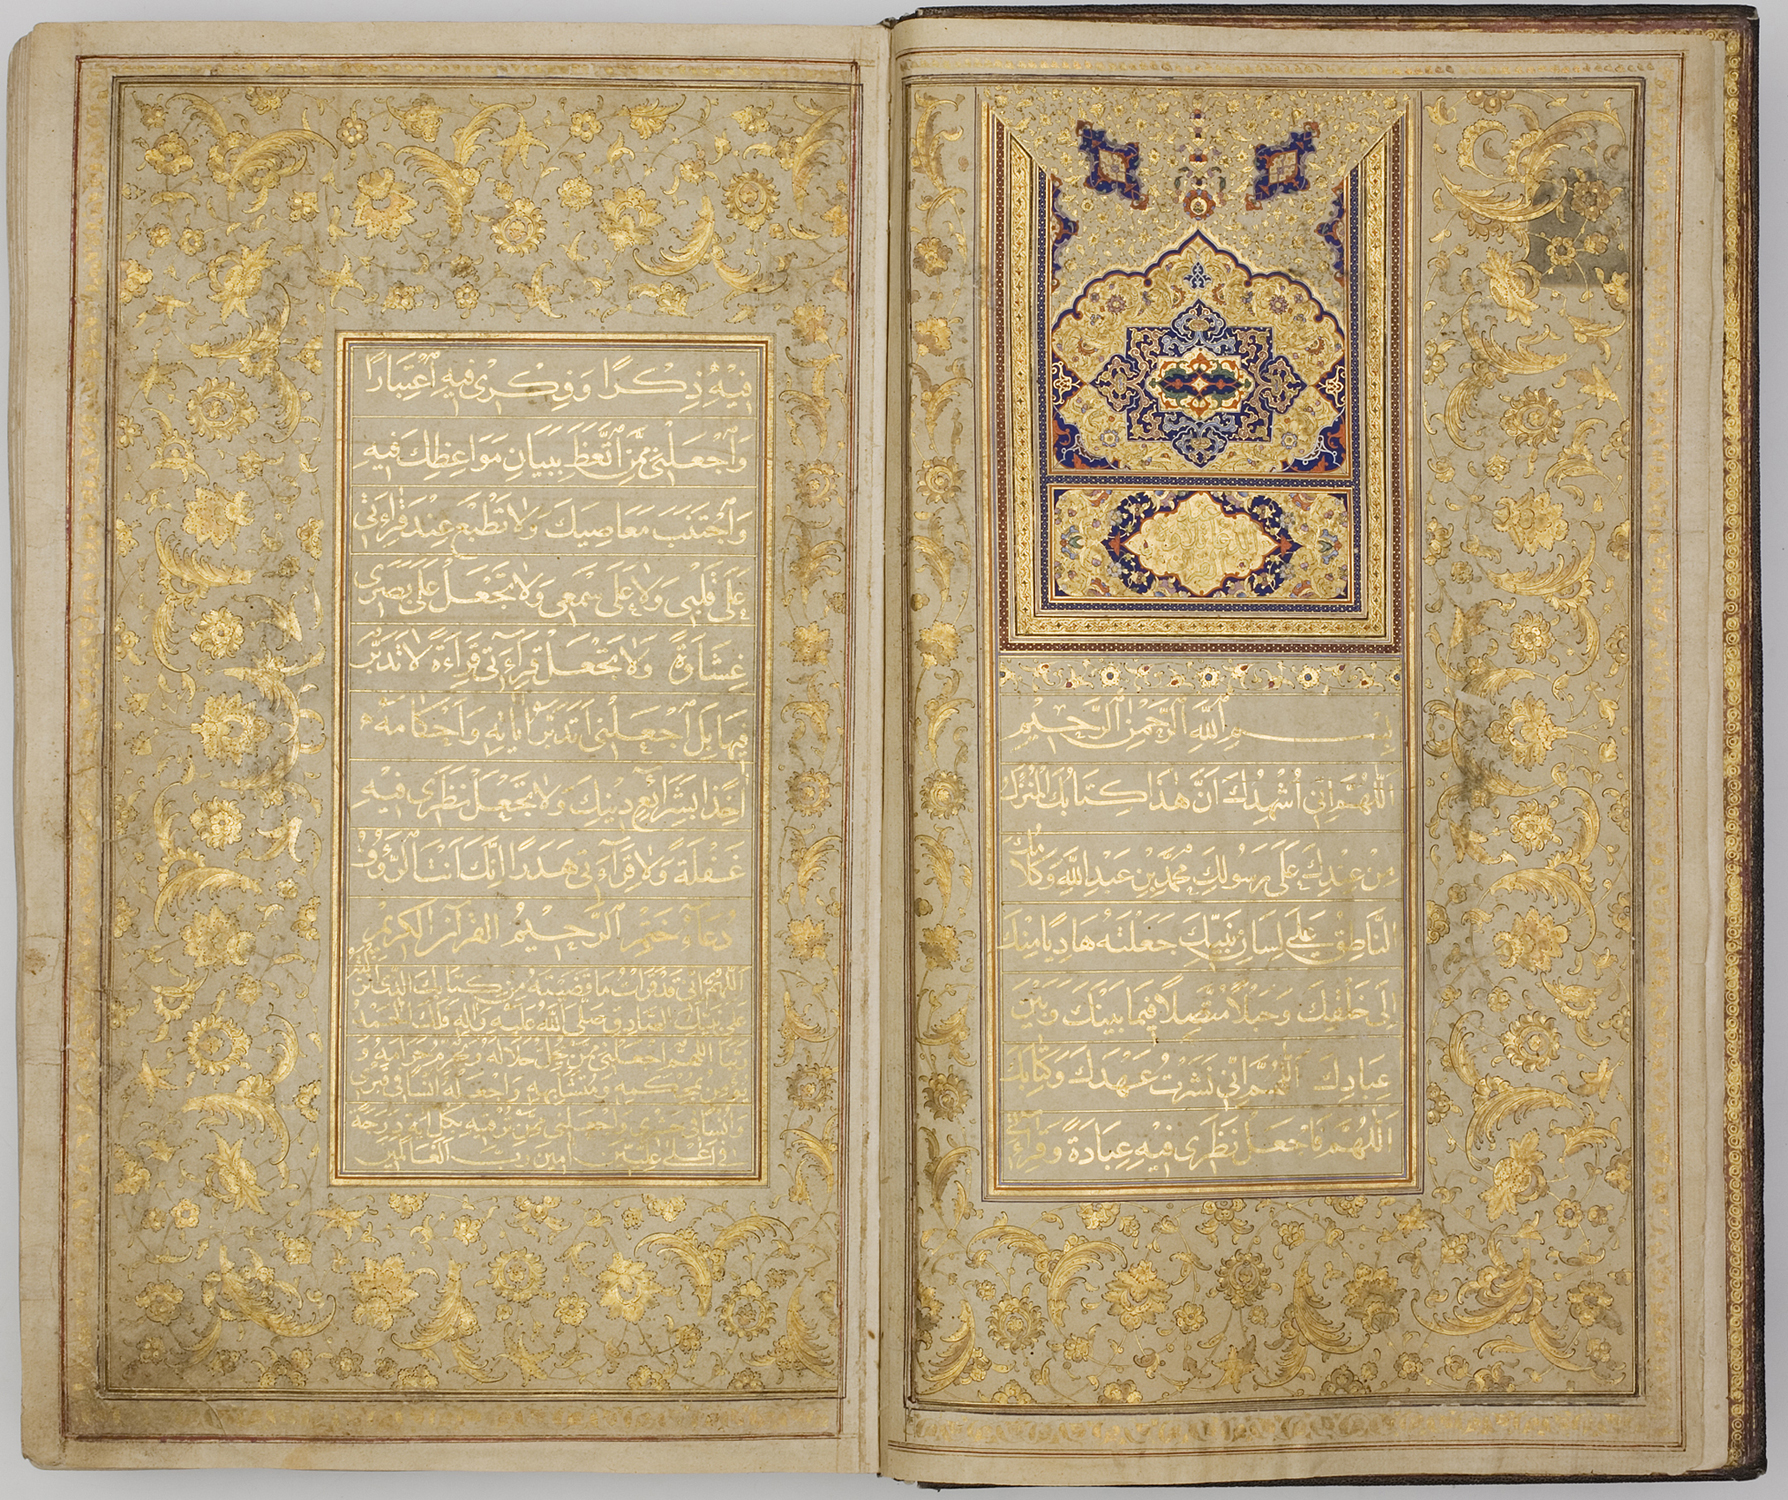 بِسْمِ اللهِ الرَّحْمٰنِ الرَّحِيْمِ
اَللّٰهُمَّ اِنّى اُشْهِدُكَ اَنَّ هٰذَا كِتَابُكَ الْمُنْزَلُ
مِنْ عِنْدِكَ عَلَى رَسُولِكَ مُحَمَّدِ بْنِ عَبْدِ اللهِ وَكَلَامُكَ
النَّاطِقُ عَلَى لِسَانِ نَبِيِّكَ جَعَلْتَهُ هَادِيًا مِنْكَ
اِلَى خَلْقِكَ وَحَبْلًا مُتَّصِلًا فِيمَا بَيْنَكَ وَبَيْنَ
عِبَادِكَ اَللّٰهُمَّ اِنّى نَشَرْتُ عَهْدَكَ وَكِتَابَكَ
اَللّٰهُمَّ فَاجْعَلْ نَظَرى فِيْهِ عِبَادَةً وَقِرَاءَتى
فِيْهِ ذِكْرًا وَفِكْرى فِيهِ اعْتِبَارًا
وَاجْعَلْنى مِمَّنِ اتَّعَظَ بِبَيَانِ مَوَاعِظِكَ فِيهِ
وَاجْتَنَبَ مَعَاصِيكَ وَلَا تَطْبَعْ عِنْدَ قِرَاءَتى
عَلَى قَلْبى وَلَا عَلَى سَمْعى وَلَا تَجْعَلْ عَلَى بَصَرى
غِشَاوَةً وَلَا تَجْعَلْ قِرَاءَتى قِرَاءَةً لَا تَدَبُّرَ
فِيهَا بَلِ اجْعَلْنى اَتَدَبَّرُ اٰيَاتِهِ وَاَحْكَامَهُ
اٰخِذًا بِشَرَائِعِ دِينِكَ وَلَا تَجْعَلْ نَظَرى فِيْهِ
غَفْلَةً وَلَا قِرَاءَتى هَذَرًا اِنَّكَ اَنْتَ الرَّؤُفُ
الرَّحِيْمُ دُعَاءِ خَتْمِ القرآن الكريم
اَللّٰهُمَّ اِنّى قَدْ قَرَأْتُ مَا قَضَيْتَهُ مِنْ كِتَابِكَ الَّذى اَنْزَلْتَهُ
عَلَى نَبِيِّكَ الصَّادِقِ صَلَّى اللهُ عَلَيْهِ وَاٰلِهِ فَلَكَ الْحَمْدُ
رَبَّنَا اَللّٰهُمَّ اجْعَلْنى مِمَّنْ يُحِلُّ حَلَالَهُ وَيُحَرِّمُ حَرَامَهُ وَ
يُؤْمِنُ بِمُحْكَمِهِ وَمُتَشَابِهِهِ وَاجْعَلْهُ لى اُنْسًا فى قَبْرى
وَاُنْسًا فى حَشْرى وَاجْعَلْنى مِمَّنْ تُرَقّيهِ بِكُلِّ اٰيَةٍ دَرَجَةً
فى اَعْلَى عِلِّيّيْنَ اٰمِينَ رَبَّ الْعَالَمِيْنَ